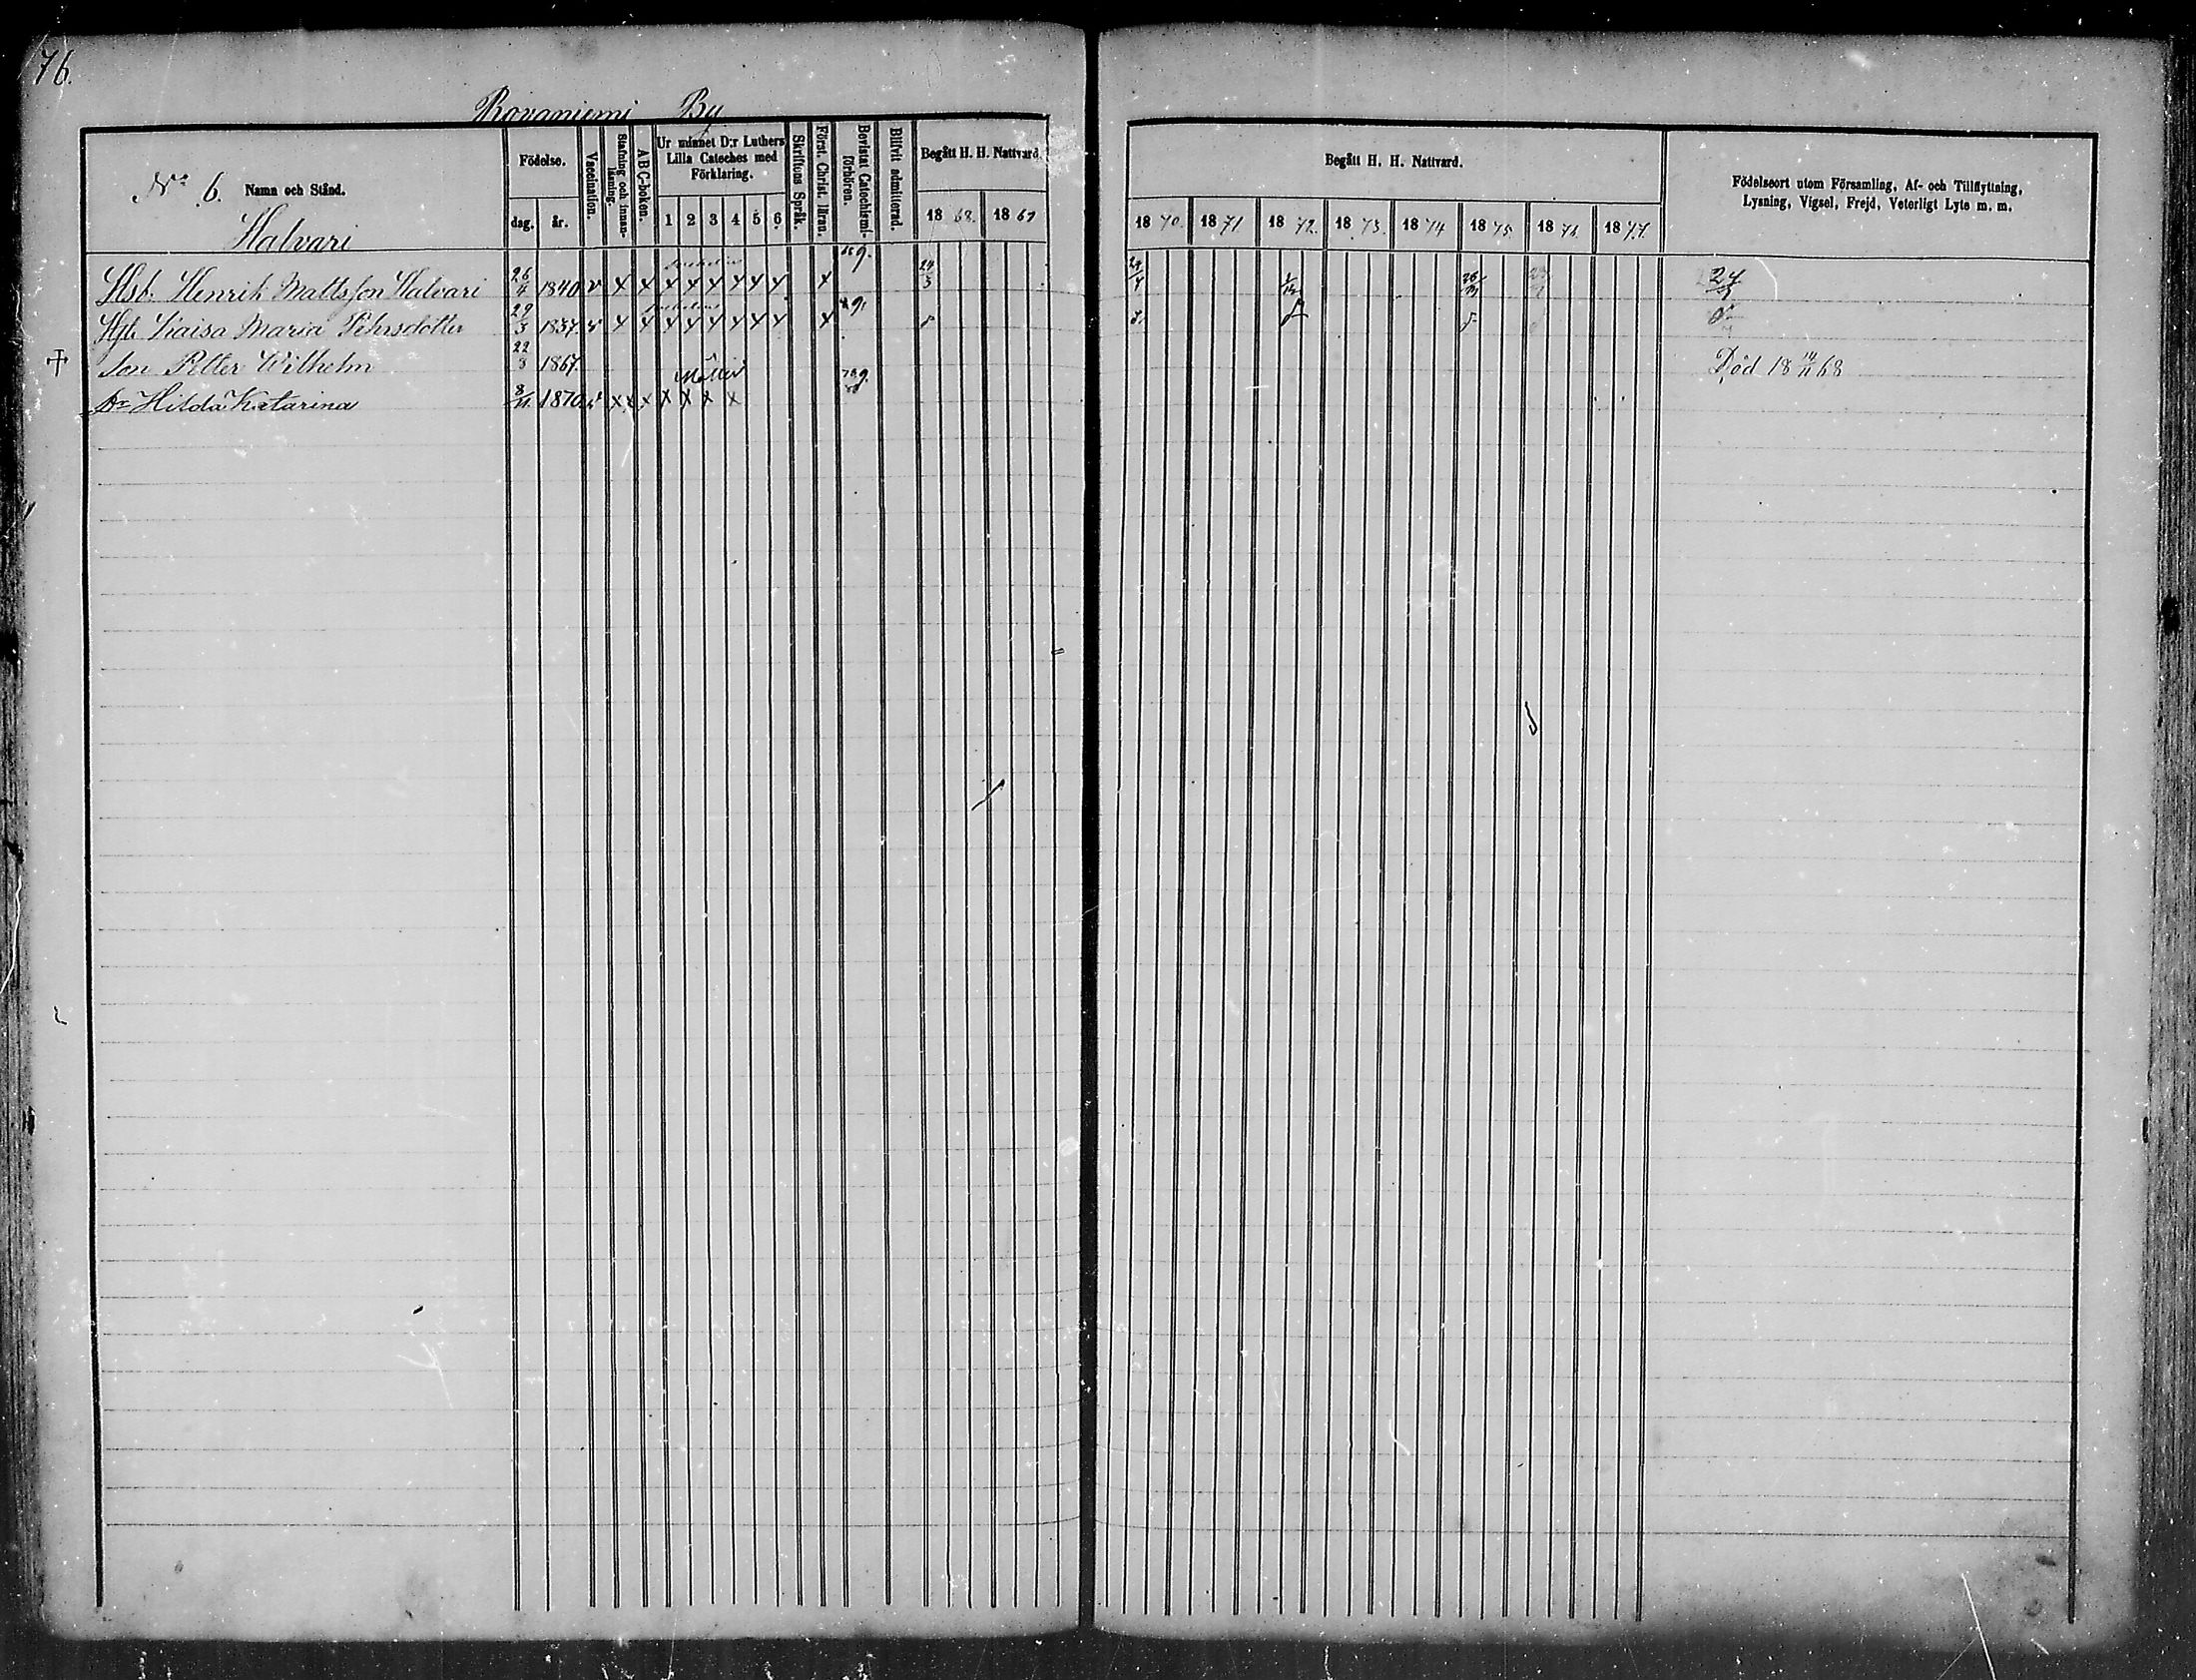 76.
Rovaniemi By
No 6. Namn och Stånd.
Halvari
Födelse.
dag. år.
Vaccination.
Stafning och innan-läsning.
A B C-boken.
Ur minnet D:r Luthers
Lilla Cateches med
Förklaring.
1 2 3 4 5 6
Skriftens Språk.
Först. Christ. läran.
Bevistat Catechismi-förhören.
Blifvit admitterad.
Begått H. H. Nattvard.
18 68. 18 69
Begått H. H. Nattvard.
18 70. 18 71 18 72. 18 73. 18 74 18 75. 18 76. 18 77.
Födelseort utom Församling, Af- och Tillflyttning,
Lysning, Vigsel, Frejd, Veterligt Lyte m. m.
Hsb. Henrik Mattsson Halvari 26/4 1840 v x x x x x x x x x 24/3 24/4
Hst. Caisa Maria Pehrsdotter 29/3 1837. v x x x x x x x x x
† Son Petter Wilhelm 22/3 1867. Död 18 14/11 68
Dr Hilda Katarina 8/11 1870 v x x x x x x x